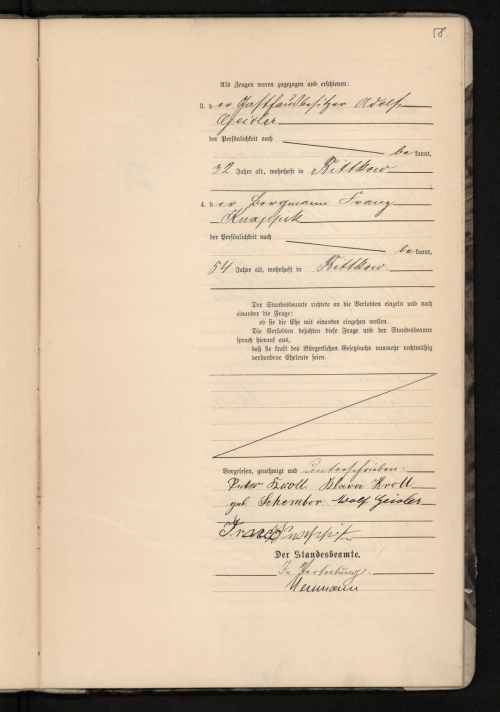 58.
Als Zeugen waren zugezogen und erschienen:
3. der Gasthausbesitzer Adolf
Geisler
der Persönlichkeit nach
be kannt,
32 Jahre alt, wohnhaft in Bittkow
4. der Bergmann Franz
Knappik
der Persönlichkeit nach
be kannt,
54 Jahre alt, wohnhaft in Bittkow.
Der Standesbeamte richtete an die Verlobten einzeln und nach
einander die Frage:
ob sie die Ehe mit einander eingehen wollen.
Die Verlobten bejahten diese Frage und der Standesbeamte
sprach hierauf aus,
daß sie kraft des Bürgerlichen Gesetzbuchs nunmehr rechtmäßig
verbundene Eheleute seien.
Vorgelesen, genehmigt und unterschrieben:
Peter Kroll Klara Kroll
geb. Schember Adolf Geisler
Franz Knappik
Der Standesbeamte.
In Vertretung.
Neumann